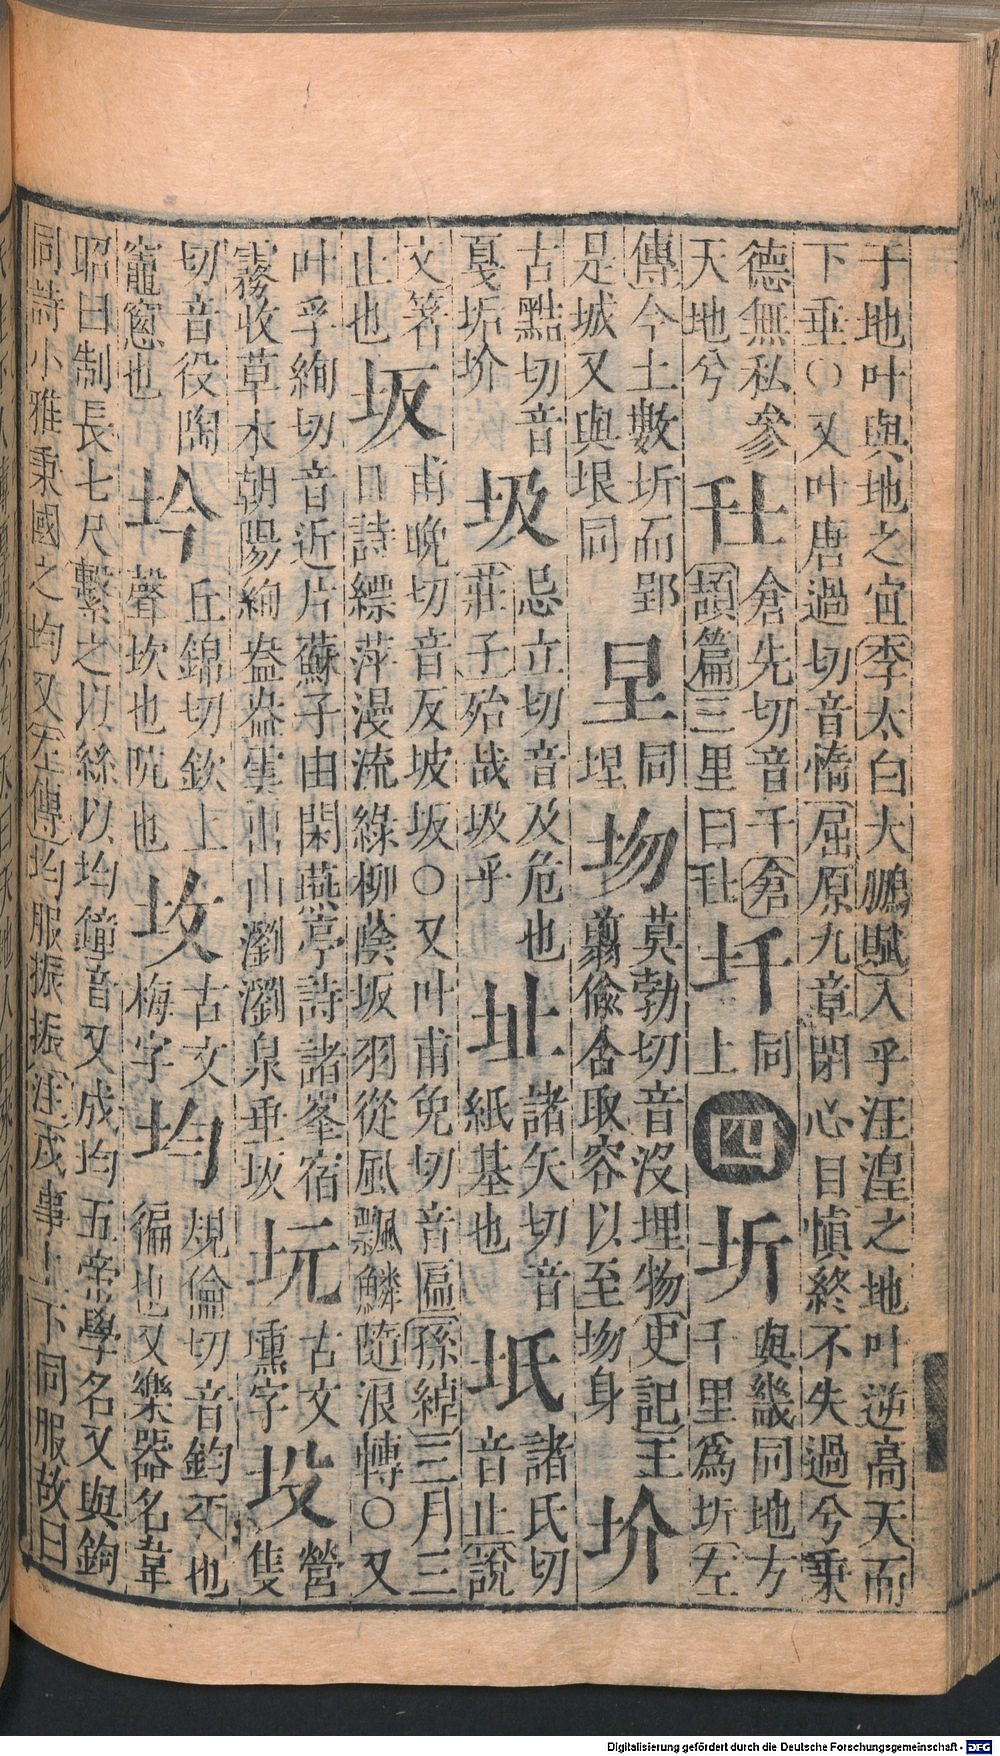 于地叶與地之宜李太白大鵬賦入乎汪湟之地叶逆高天而
下垂○又叶唐過切音惰屈原九章閉心自慎終不失過兮秉
德無私參
天地兮
𡉌
倉先切音千倉
頡篇三里曰𡉌
圲
同
上
四
圻
與畿同地方
千里爲圻左
傳今土數圻而郢
是城又與垠同
𡉰
同
埕
圽
莫勃切音沒埋物史記王
翦偷合取容以至圽身
圿
古黠切音
戛垢圿
圾
忌立切音及危也
莊子殆哉圾乎
址
諸矢切音
紙基也
坁
諸氏切
音止說
文箸
止也
坂
甫晚切音反坡坂○又叶甫免切音匾孫綽三月三
日詩縹萍漫流綠柳蔭坂羽從風飄鱗隨浪轉○又
叶孚絢切音近片蘇子由閑燕亭詩諸峯宿
霧收草木朝陽絢盎盎雲出山瀏瀏泉垂坂
坃
古文
壎字
坄
營
隻
切音役陶
竈窻也
坅
丘錦切欽上
聲坎也阬也
坆
古文
梅字
均
規倫切音鈞平也
徧也又樂器名韋
昭曰制長七尺繫之以絲以均鐘音又成均五帝學名又與鈞
同詩小雅秉國之均又左傳均服振振注戎事上下同服故曰
Digitalisierung gefördert durch die Deutsche Forschungsgemeinschaft - DFG